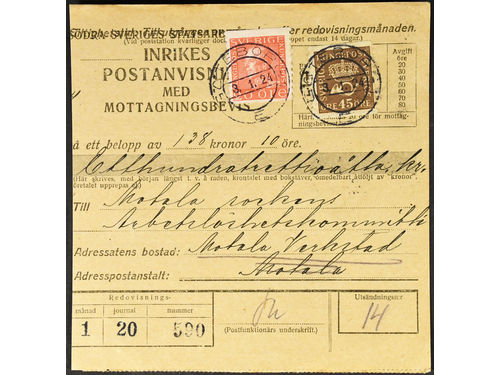 SÖDRA SVERIGES STATSARB
eller redovisningsmånaden.
(Vid poststation kvarligger
ppet endast 14 dagar.)
INRIKES
POSTANVISNI
MED
MOTTAGNINGSBEVIS
SVERIGE
3.1.24
45 ÖRE
Avgift
öre
20
30
40
50
60
70
80
öre för mottag-
ningsbevis
å ett belopp av 138 kronor 10 öre.
Etthundratrettioåtta kr.
(Här skrives, med början längst t. v. å raden, krontalet med bokstäver, omedelbart åtföljt av "kronor"
öretalet upprepas ej.)
Till Motala sockens
Arbetslöshetskommitté
Adressatens bostad: Motala Verkstad
Adresspostanstalt: Motala
Redovisnings-
månad journal nummer
1 20 590
(Postfunktionärs underskrift.)
Utsändningsnr
14